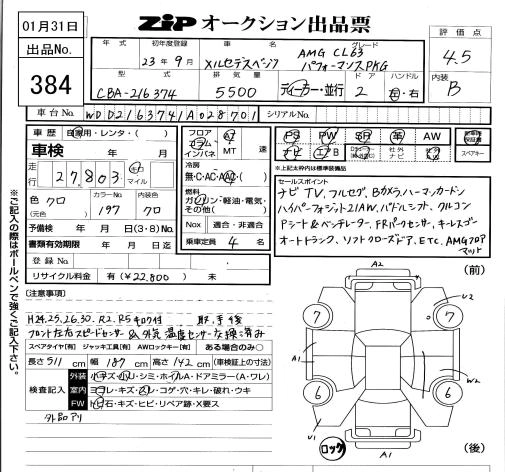 01月31日
ZIP オークション出品票
出品No.
384
年式 初年度登録 車名 グレード
23年9月 メルセデスベンツ AMG CL63 パフォーマンスPKG
型式 排気量 ドア ハンドル
CBA-216374 5500 ディーラー・並行 2 左・右
評価点
4.5
内装
B
車台No. WDD2163741A028701 シリアルNo.
車歴 自家用・レンタ・( )
車検 年 月
走行 27,803 キロ マイル
色 クロ カラーNo. 197 内装色 クロ
(元色)
予備検 年 月 日(3・8)No.
書類有効期限 年 月 日迄
登録No.
リサイクル料金 有(¥22,800)無
フロア コラム インパネ AT MT 速
冷房
無・C・AC・AAC・( )
燃料
ガソリン・軽油・電気・その他( )
Nox 適合・非適合
乗車定員 4 名
PS PW SR 革 AW
ナビ エアB 社外ナビ 社外 スペアキー
※上記太枠は標準装備品
セールスポイント
ナビ TV、フルセグ、Bカメラ、ハーマンカードン
ハイパーフォジット21AW、パドルシフト、クルコン
Pシート&ベンチレーター、FRパークセンサー、キーレスゴー
オートトランク、ソフトクローズドア、ETC、AMGフロアマット
※ご記入の際はボールペンで強くご記入下さい。
[注意事項]
H24.25.26.30.R2.R5キロク付 取、手後
フロント左右スピードセンサー&外気温度センサー交換済み
スペアタイヤ[有] ジャッキ工具[有] AWロックキー[有] ある場合のみ○
長さ511cm 幅187cm 高さ142cm (車検証上の寸法)
検査記入
外装 小キズ・小凹・シミ・ホイルA・ドアミラー(A・ワレ)
室内 ヨゴレ・キズ・スレ・コゲ・穴・キレ・破れ・ウキ
FW トビ石・キズ・ヒビ・リペア跡・X要ス
外品アリ
(前)
A2
U2
7
7
A1
W2
6
6
U1
ロック
A1
(後)